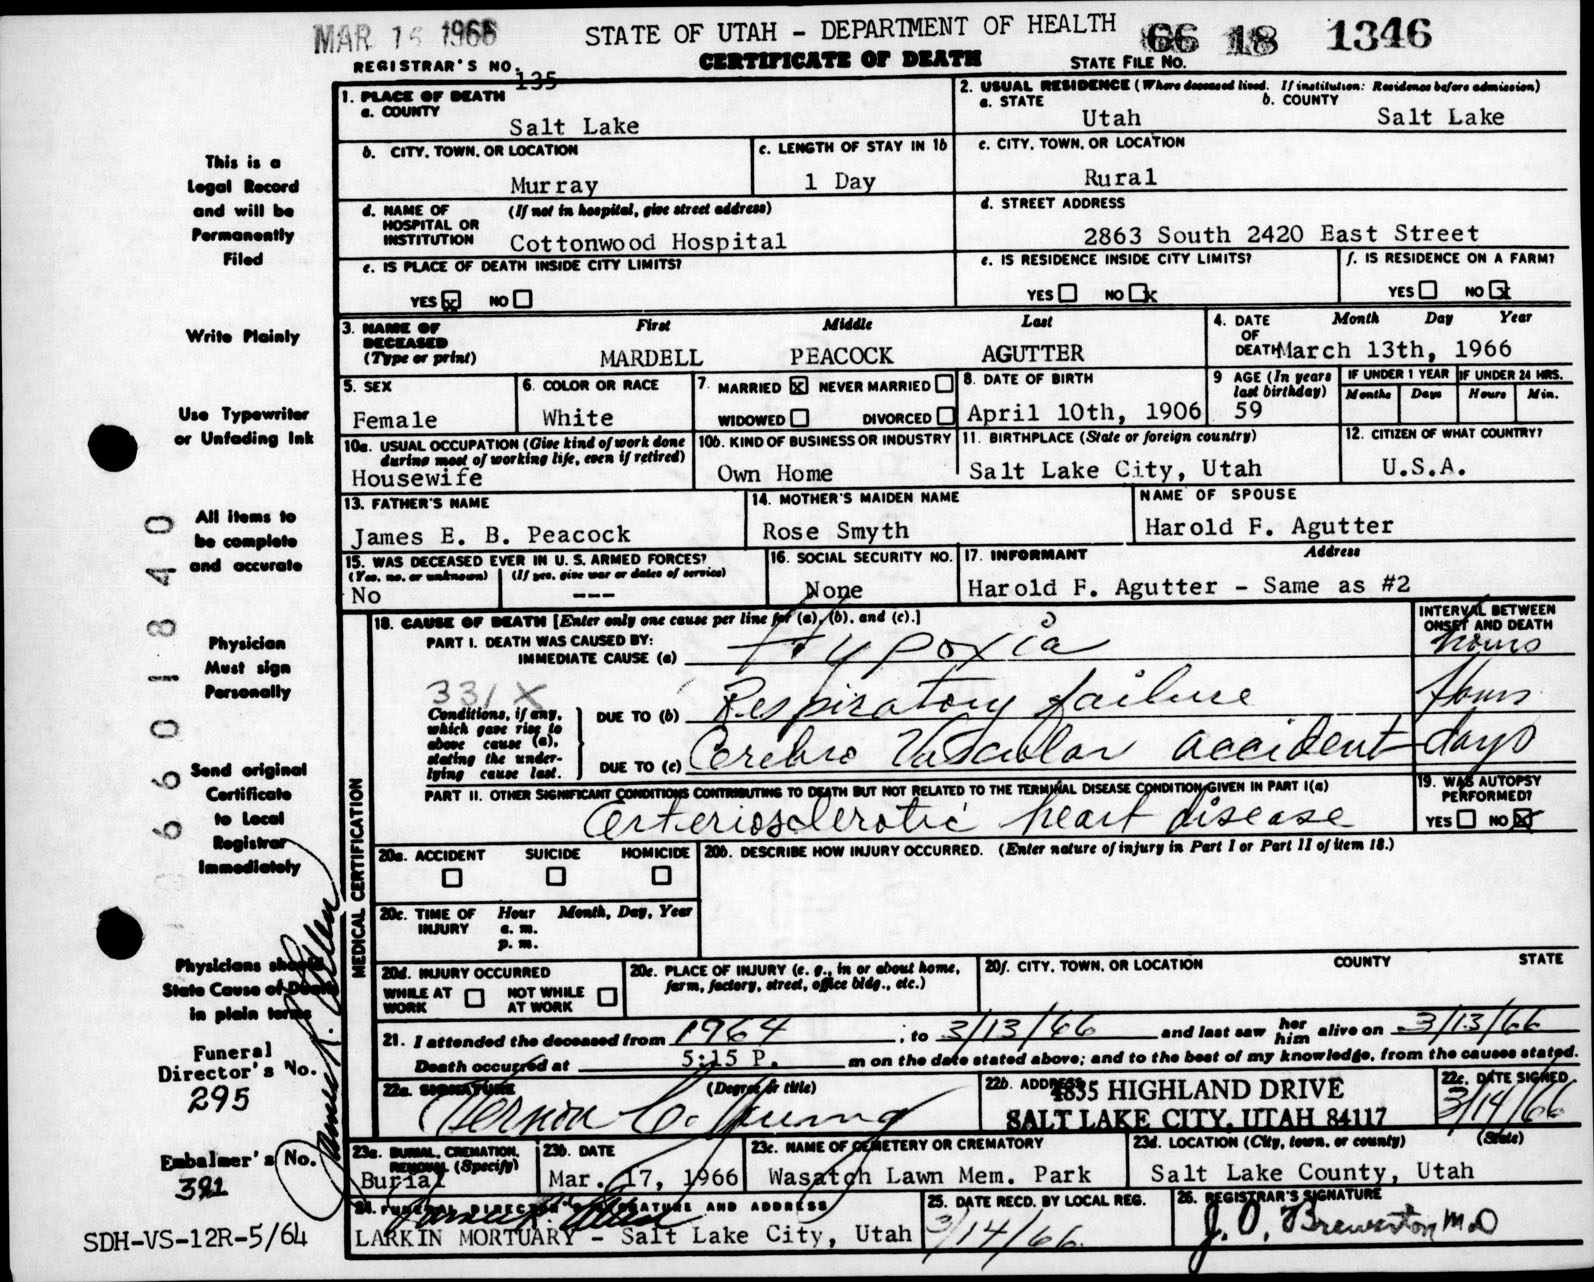 MAR 16 1966
STATE OF UTAH - DEPARTMENT OF HEALTH
66 18 1346
REGISTRAR'S NO. 135
CERTIFICATE OF DEATH
STATE FILE NO.
1. PLACE OF DEATH
a. COUNTY
Salt Lake
2. USUAL RESIDENCE (Where deceased lived. If institution: Residence before admission)
a. STATE
Utah
b. COUNTY
Salt Lake
b. CITY, TOWN, OR LOCATION
Murray
c. LENGTH OF STAY IN 1b
1 Day
c. CITY, TOWN, OR LOCATION
Rural
d. NAME OF HOSPITAL OR INSTITUTION
(If not in hospital, give street address)
Cottonwood Hospital
d. STREET ADDRESS
2863 South 2420 East Street
e. IS PLACE OF DEATH INSIDE CITY LIMITS?
YES x NO
e. IS RESIDENCE INSIDE CITY LIMITS?
YES NO x
f. IS RESIDENCE ON A FARM?
YES NO x
3. NAME OF DECEASED (Type or print)
First Middle Last
MARDELL PEACOCK AGUTTER
4. DATE OF DEATH
Month Day Year
March 13th, 1966
5. SEX
Female
6. COLOR OR RACE
White
7. MARRIED x NEVER MARRIED
WIDOWED DIVORCED
8. DATE OF BIRTH
April 10th, 1906
9 AGE (In years last birthday)
59
IF UNDER 1 YEAR
Months Days
IF UNDER 24 HRS.
Hours Min.
10a. USUAL OCCUPATION (Give kind of work done during most of working life, even if retired)
Housewife
10b. KIND OF BUSINESS OR INDUSTRY
Own Home
11. BIRTHPLACE (State or foreign country)
Salt Lake City, Utah
12. CITIZEN OF WHAT COUNTRY?
U.S.A.
13. FATHER'S NAME
James E. B. Peacock
14. MOTHER'S MAIDEN NAME
Rose Smyth
NAME OF SPOUSE
Harold F. Agutter
15. WAS DECEASED EVER IN U.S. ARMED FORCES?
(Yes, no, or unknown) (If yes, give war or dates of service)
No ---
16. SOCIAL SECURITY NO.
None
17. INFORMANT Address
Harold F. Agutter - Same as #2
18. CAUSE OF DEATH [Enter only one cause per line for (a), (b), and (c).]
INTERVAL BETWEEN ONSET AND DEATH
PART I. DEATH WAS CAUSED BY:
IMMEDIATE CAUSE (a) Hypoxia hours
331X
Conditions, if any, which gave rise to above cause (a), stating the underlying cause last.
DUE TO (b) Respiratory failure hours
DUE TO (c) Cerebro Vascular accident days
PART II. OTHER SIGNIFICANT CONDITIONS CONTRIBUTING TO DEATH BUT NOT RELATED TO THE TERMINAL DISEASE CONDITION GIVEN IN PART I(a)
Arteriosclerotic heart disease
19. WAS AUTOPSY PERFORMED?
YES NO x
MEDICAL CERTIFICATION
20a. ACCIDENT SUICIDE HOMICIDE
20b. DESCRIBE HOW INJURY OCCURRED. (Enter nature of injury in Part I or Part II of item 18.)
20c. TIME OF INJURY
Hour Month, Day, Year
a. m.
p. m.
20d. INJURY OCCURRED
WHILE AT WORK NOT WHILE AT WORK
20e. PLACE OF INJURY (e. g., in or about home, farm, factory, street, office bldg., etc.)
20f. CITY, TOWN, OR LOCATION COUNTY STATE
21. I attended the deceased from 1964, to 3/13/66 and last saw her him alive on 3/13/66
Death occurred at 5:15 P. m on the date stated above; and to the best of my knowledge, from the causes stated.
22a. SIGNATURE (Degree or title)
Vernon C. Young
22b. ADDRESS
4835 HIGHLAND DRIVE
SALT LAKE CITY, UTAH 84117
22c. DATE SIGNED
3/14/66
23a. BURIAL, CREMATION, REMOVAL (Specify)
Burial
23b. DATE
Mar. 17, 1966
23c. NAME OF CEMETERY OR CREMATORY
Wasatch Lawn Mem. Park
23d. LOCATION (City, town, or county) (State)
Salt Lake County, Utah
24. FUNERAL DIRECTOR'S SIGNATURE AND ADDRESS
LARKIN MORTUARY - Salt Lake City, Utah
25. DATE RECD. BY LOCAL REG.
3/14/66
26. REGISTRAR'S SIGNATURE
J. O. Brewerton MD
This is a
Legal Record
and will be
Permanently
Filed
Write Plainly
Use Typewriter
or Unfading Ink
All items to
be complete
and accurate
Physician
Must sign
Personally
Send original
Certificate
to Local
Registrar
Immediately
Physicians should
State Cause of Death
in plain terms
Funeral
Director's No.
295
Embalmer's No.
391
SDH-VS-12R-5/64
6601840